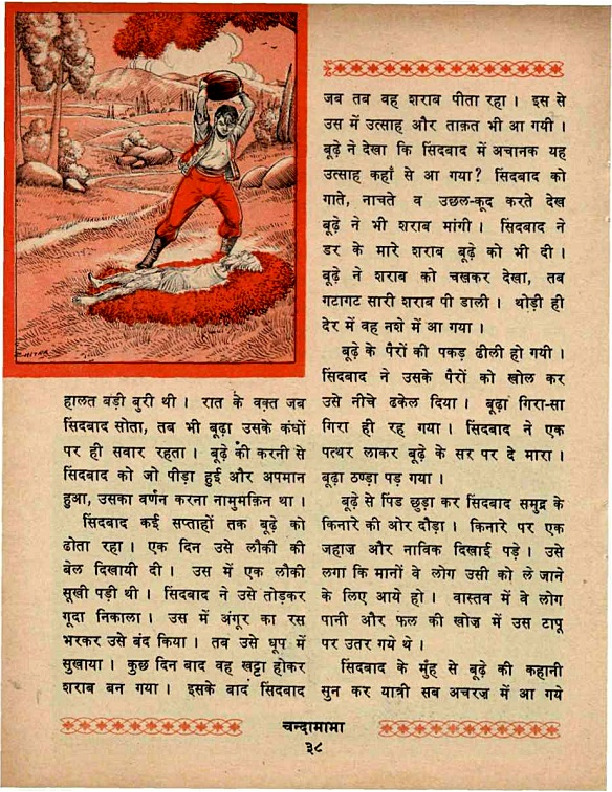 हालत बड़ी बुरी थी । रात के वक़्त जब
सिंदबाद सोता, तब भी बूढ़ा उसके कंधों
पर ही सवार रहता । बूढ़े की करनी से
सिंदबाद को जो पीड़ा हुई और अपमान
हुआ, उसका वर्णन करना नामुमक़िन था ।
सिंदबाद कई सप्ताहों तक बूढ़े को
ढोता रहा । एक दिन उसे लौकी की
बेल दिखायी दी । उस में एक लौकी
सूखी पड़ी थी । सिंदबाद ने उसे तोड़कर
गूदा निकाला । उस में अंगूर का रस
भरकर उसे बंद किया । तब उसे धूप में
सुखाया । कुछ दिन बाद वह खट्टा होकर
शराब बन गया । इसके बाद सिंदबाद
जब तब वह शराब पीता रहा । इस से
उस में उत्साह और ताक़त भी आ गयी ।
बूढ़े ने देखा कि सिंदबाद में अचानक यह
उत्साह कहां से आ गया? सिंदबाद को
गाते, नाचते व उछल-कूद करते देख
बूढ़े ने भी शराब मांगी । सिंदबाद ने
डर के मारे शराब बूढ़े को भी दी ।
बूढ़े ने शराब को चखकर देखा, तब
गटागट सारी शराब पी डाली । थोड़ी ही
देर में वह नशे में आ गया ।
बूढ़े के पैरों की पकड़ ढीली हो गयी ।
सिंदबाद ने उसके पैरों को खोल कर
उसे नीचे ढकेल दिया । बूढ़ा गिरा-सा
गिरा ही रह गया । सिंदबाद ने एक
पत्थर लाकर बूढ़े के सर पर दे मारा ।
बूढ़ा ठण्डा पड़ गया ।
बूढ़े से पिंड छुड़ा कर सिंदबाद समुद्र के
किनारे की ओर दौड़ा । किनारे पर एक
जहाज़ और नाविक दिखाई पड़े । उसे
लगा कि मानों वे लोग उसी को ले जाने
के लिए आये हो । वास्तव में वे लोग
पानी और फल की खोज में उस टापू
पर उतर गये थे ।
सिंदबाद के मुँह से बूढ़े की कहानी
सुन कर यात्री सब अचरज़ में आ गये
चन्दामामा
३८